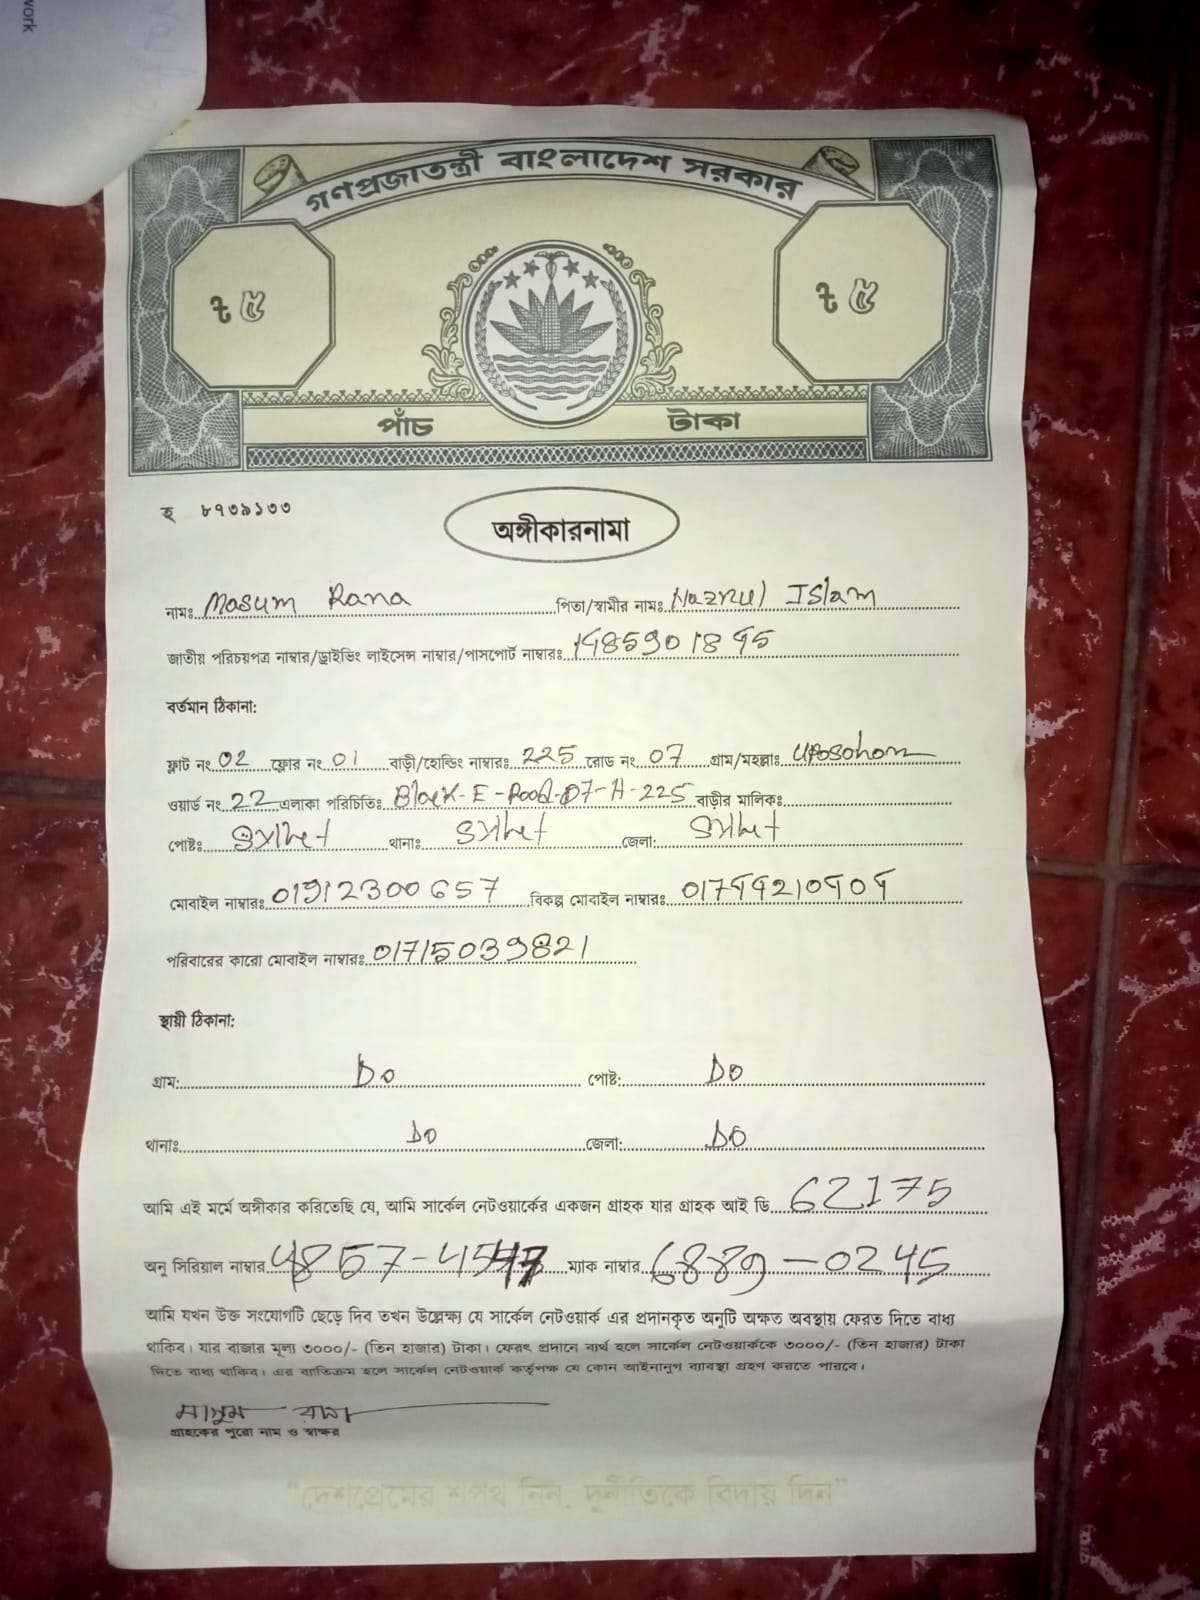 work
গণপ্রজাতন্ত্রী বাংলাদেশ সরকার
৳ ৫ ৳ ৫
পাঁচ টাকা
হ ৮৭৩৯১৩৩
অঙ্গীকারনামা
নামঃ Masum Rana পিতা/স্বামীর নামঃ Nazrul Islam
জাতীয় পরিচয়পত্র নাম্বার/ড্রাইভিং লাইসেন্স নাম্বার/পাসপোর্ট নাম্বারঃ
বর্তমান ঠিকানা:
ফ্লাট নং 02 ফ্লোর নং 01 বাড়ী/হোল্ডিং নাম্বারঃ 225 রোড নং 07 গ্রাম/মহল্লাঃ Uposohor
ওয়ার্ড নং 22 এলাকা পরিচিতিঃ Block-E-Road-07-H-225 বাড়ীর মালিকঃ
পোষ্টঃ Sylhet থানাঃ Sylhet জেলা: Sylhet
মোবাইল নাম্বারঃ 01912300657 বিকল্প মোবাইল নাম্বারঃ
পরিবারের কারো মোবাইল নাম্বারঃ 01715039821
স্থায়ী ঠিকানা:
গ্রাম: Do পোষ্ট: Do
থানাঃ Do জেলা: Do
আমি এই মর্মে অঙ্গীকার করিতেছি যে, আমি সার্কেল নেটওয়ার্কের একজন গ্রাহক যার গ্রাহক আই ডি 62175
অনু সিরিয়াল নাম্বার ম্যাক নাম্বার 6889-0245
আমি যখন উক্ত সংযোগটি ছেড়ে দিব তখন উল্লেক্ষ্য যে সার্কেল নেটওয়ার্ক এর প্রদানকৃত অনুটি অক্ষত অবস্থায় ফেরত দিতে বাধ্য
থাকিব। যার বাজার মূল্য ৩০০০/- (তিন হাজার) টাকা। ফেরৎ প্রদানে ব্যর্থ হলে সার্কেল নেটওয়ার্ককে ৩০০০/- (তিন হাজার) টাকা
দিতে বাধ্য থাকিব। এর ব্যাতিক্রম হলে সার্কেল নেটওয়ার্ক কর্তৃপক্ষ যে কোন আইনানুগ ব্যাবস্থা গ্রহণ করতে পারবে।
মাসুম রানা
গ্রাহকের পুরো নাম ও স্বাক্ষর
"দেশপ্রেমের শপথ নিন, দুর্নীতিকে বিদায় দিন"